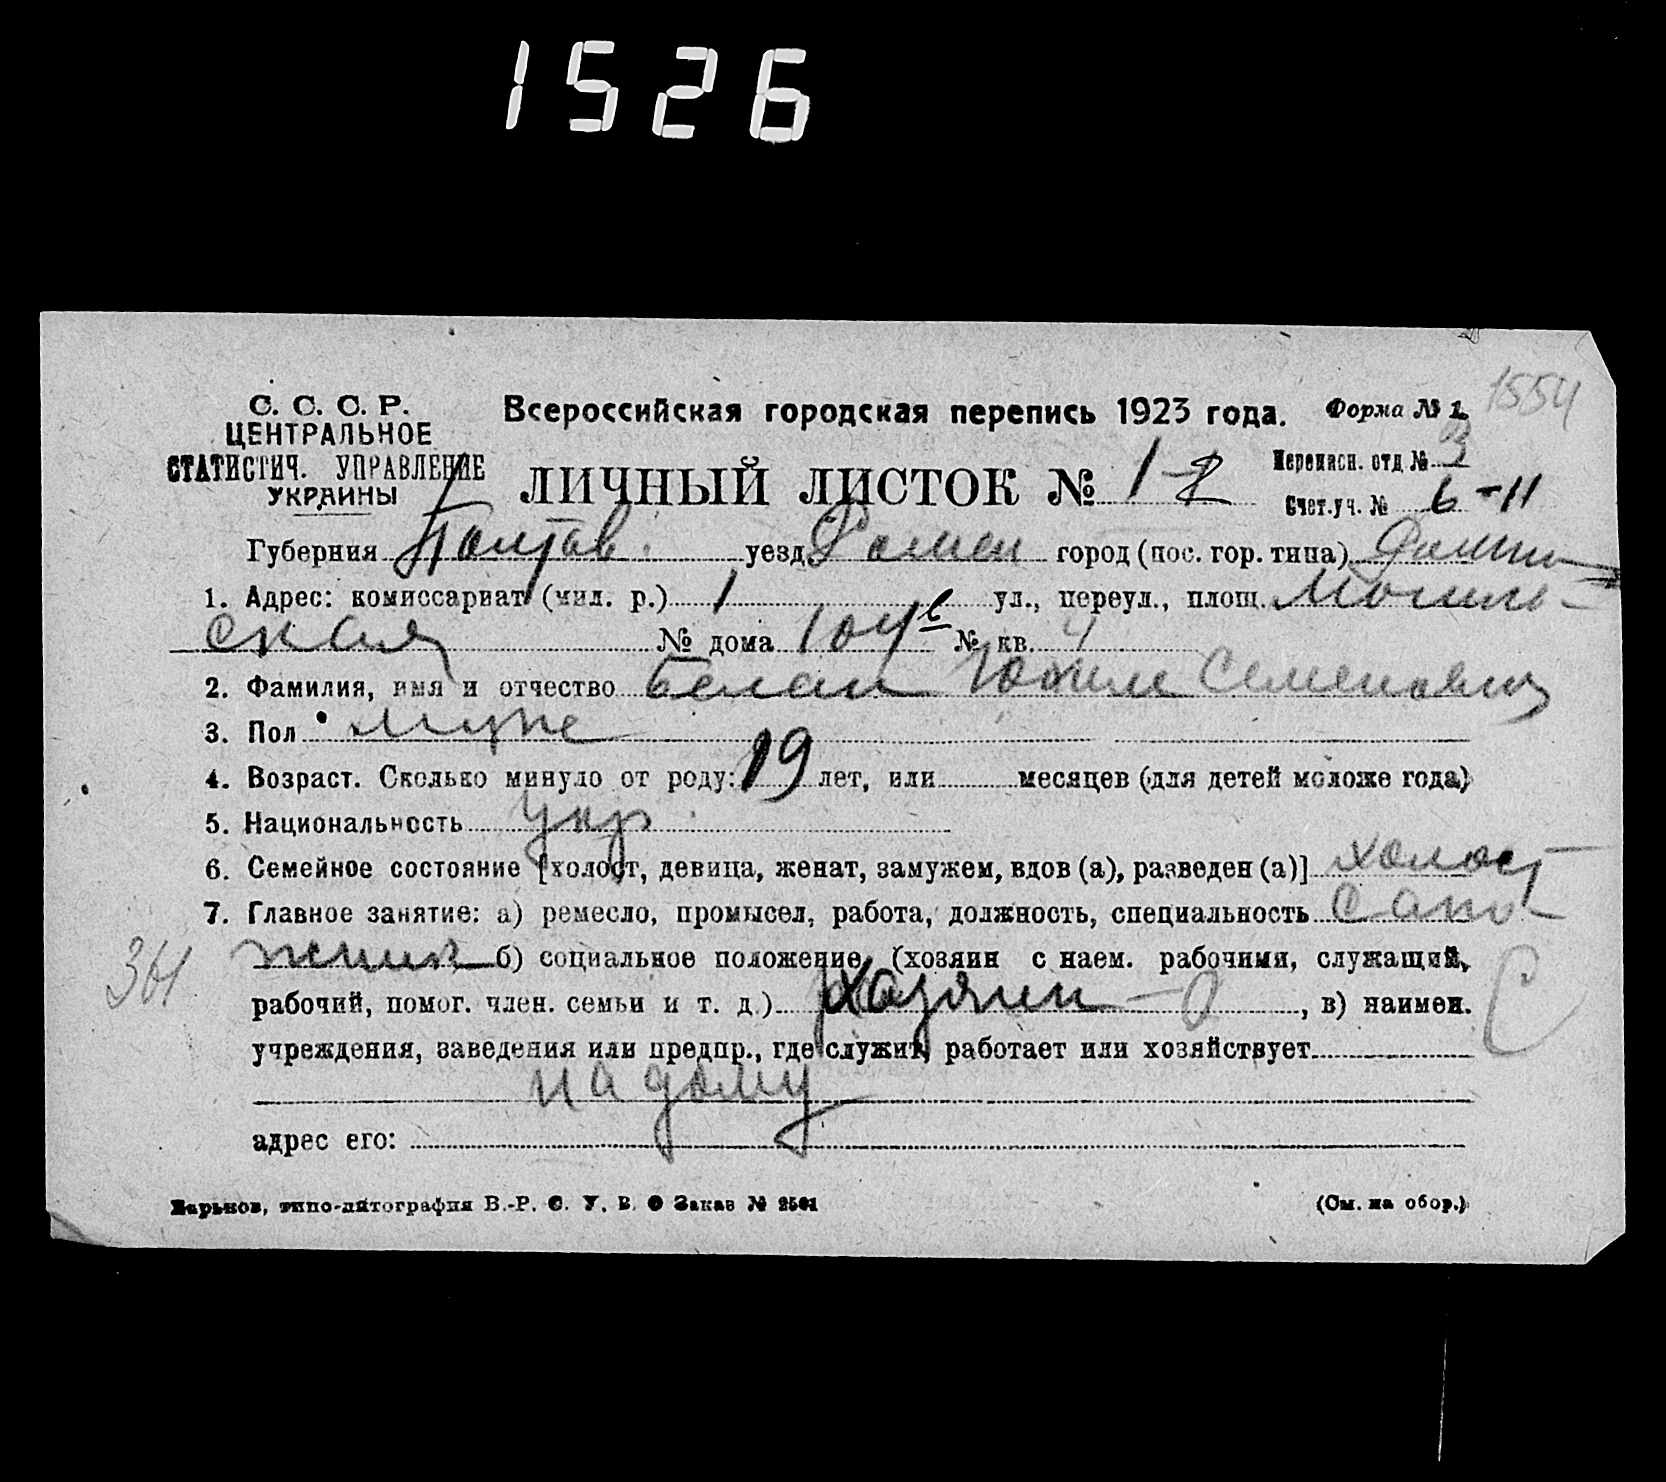 1526
1554
С. С. С. Р.
ЦЕНТРАЛЬНОЕ
СТАТИСТИЧ. УПРАВЛЕНИЕ
УКРАИНЫ
Всероссийская городская перепись 1923 года.
Форма № 1.
ЛИЧНЫЙ ЛИСТОК № 1-2
Переписн. отд. № 3
Счет. уч. № 6-11
Губерния Полтав. уезд Ромен город (пос. гор. типа)
1. Адрес: комиссариат (мил. р.) 1 ул., переул., площ.
ская № дома 104 № кв. 4
2. Фамилия, имя и отчество Белан Семенович
3. Пол муже
4. Возраст. Сколько минуло от роду: 19 лет, или месяцев (для детей моложе года)
5. Национальность укр.
6. Семейное состояние [холост, девица, женат, замужем, вдов (а), разведен (а)] холост
7. Главное занятие: а) ремесло, промысел, работа, должность, специальность сапо-
жник б) социальное положение (хозяин с наем. рабочими, служащий,
рабочий, помог. член. семьи и т. д.) хозяин – О , в) наимен.
учреждения, заведения или предпр., где служит, работает или хозяйствует
на дому
адрес его:
361
С
Харьков, типо-литография В.-Р. С. У. В. О Заказ № 2501
(См. на обор.)